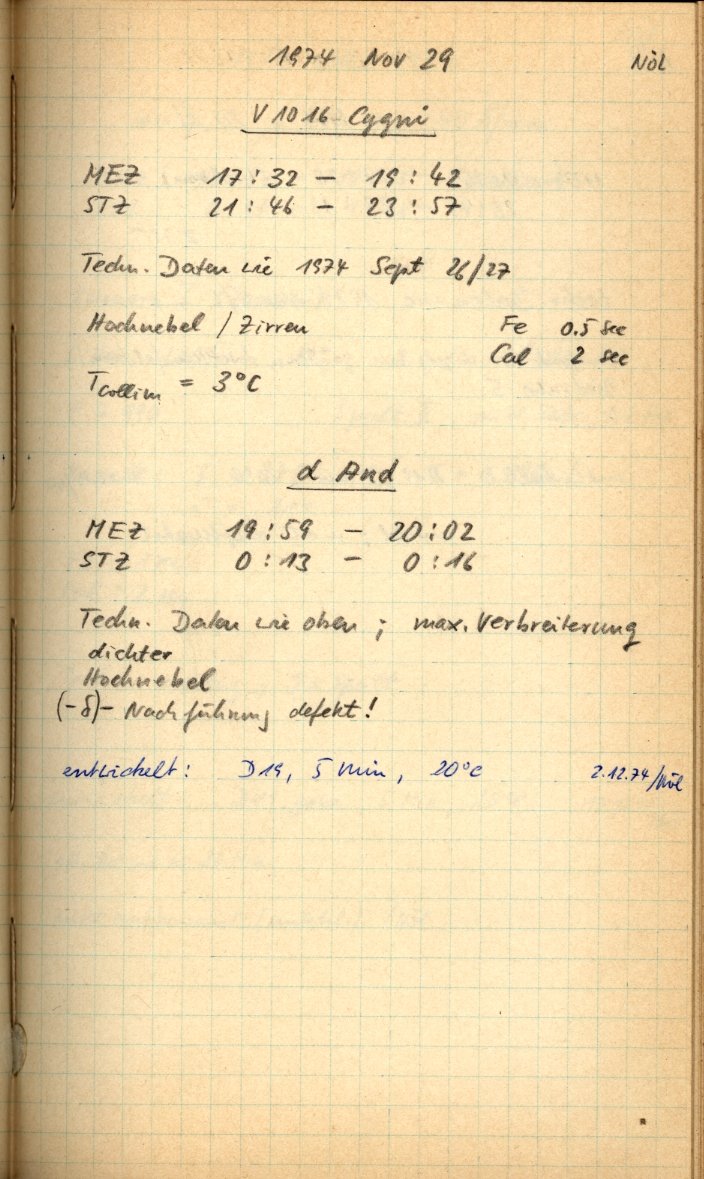 1974 Nov 29 Nöl
V 1016 Cygni
MEZ 17:32 – 19:42
STZ 21:46 – 23:57
Techn. Daten wie 1974 Sept 26/27
Hochnebel / Zirren Fe 0.5 sec
Cal 2 sec
Tcollim = 3°C
α And
MEZ 19:59 – 20:02
STZ 0:13 – 0:16
Techn. Daten wie oben ; max. Verbreiterung
dichter
Hochnebel
(-δ)- Nachführung defekt!
entwickelt: D19, 5 Min, 20°C 2.12.74/Nöl